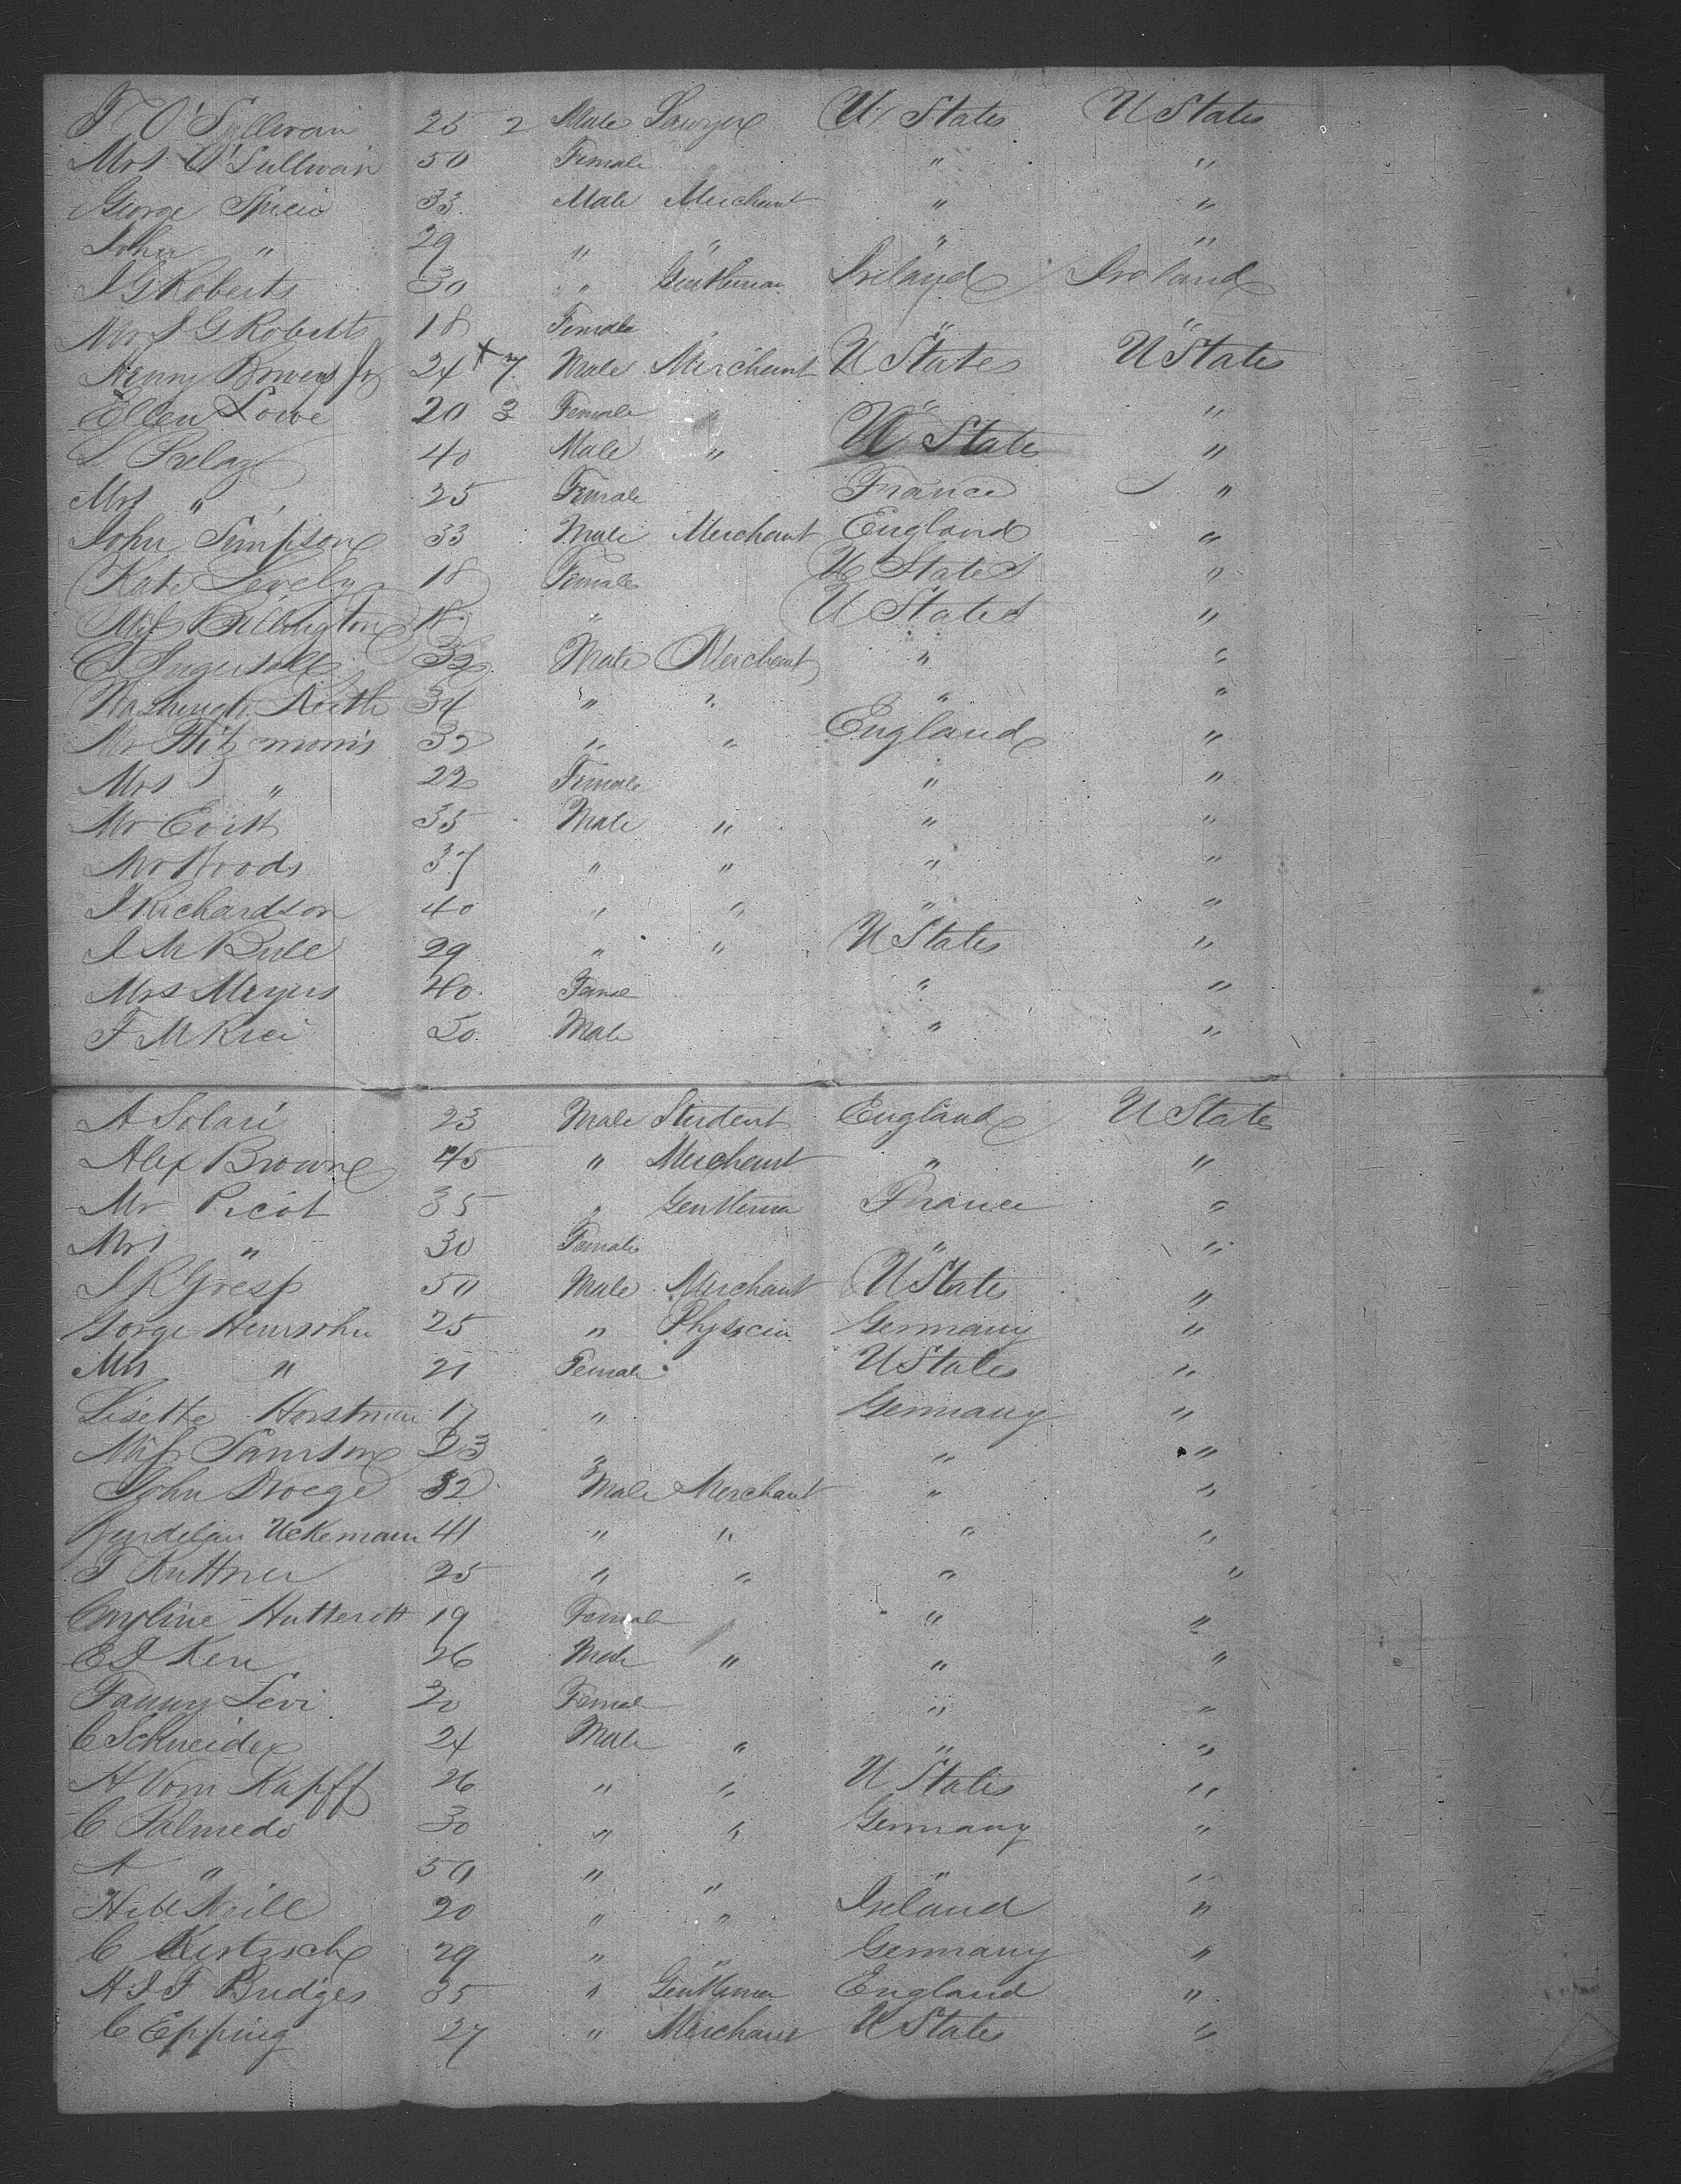 T O'Sullivan 25 2 Male Lawyer U States U States
Mrs O'Sullivan 50 Female " "
George Spicer 33 Male Merchant " "
John " 29 " " " "
J G Roberts 30 " Gentleman Ireland Ireland
Mrs J G Roberts 18 Female " "
Henry Bowers Jr 24 x 7 Male Merchant U States U States
Ellen Lowe 20 3 Female " " "
L 40 Male " U State "
Mrs " 25 Female France "
John Simpson 33 Male Merchant England "
Kate Levely 18 Female U States "
Miss Billington 18 " U States "
C Ingersoll 32 Male Merchant " "
Washingtn Keith 34 " " " "
Mr Fitzmorris 32 " " England "
Mrs " 22 Female " "
Mr Evitt 35 Male " " "
Mr Woods 37 " " " "
J Richardson 40 " " " "
J M Bull 29 " " U States "
Mrs Meyers 40 Femal " "
F M 50 Male " "
A Solari 23 Male Student England U State
Alex Brown 45 " Merchant " "
Mr Picot 35 " Gentlema France "
Mrs " 30 Female " "
J R 50 Male Merchant U States "
Gorge Heinsohn 25 " Physicia Germany "
Mrs " 21 Female U States "
Lisette Horstman 17 " Germany "
Miss Samson 23 " " "
John Droege 32 Male Merchant " "
Uckermann 41 " " " "
T Kuttner 25 " " " "
Caroline Hutterott 19 Female " "
E J Kerr 26 Male " " "
Fanny Levi 20 Female " "
C Schneider 24 Male " " "
A Vom Kapff 26 " " U States "
C Palmedo 30 " " Germany "
A " 50 " " " "
H M Neill 20 " " Ireland "
C Kirtzsche 29 " " Germany "
H J F Bridges 35 " Gentleman England "
C Epping 27 " Merchant U States "